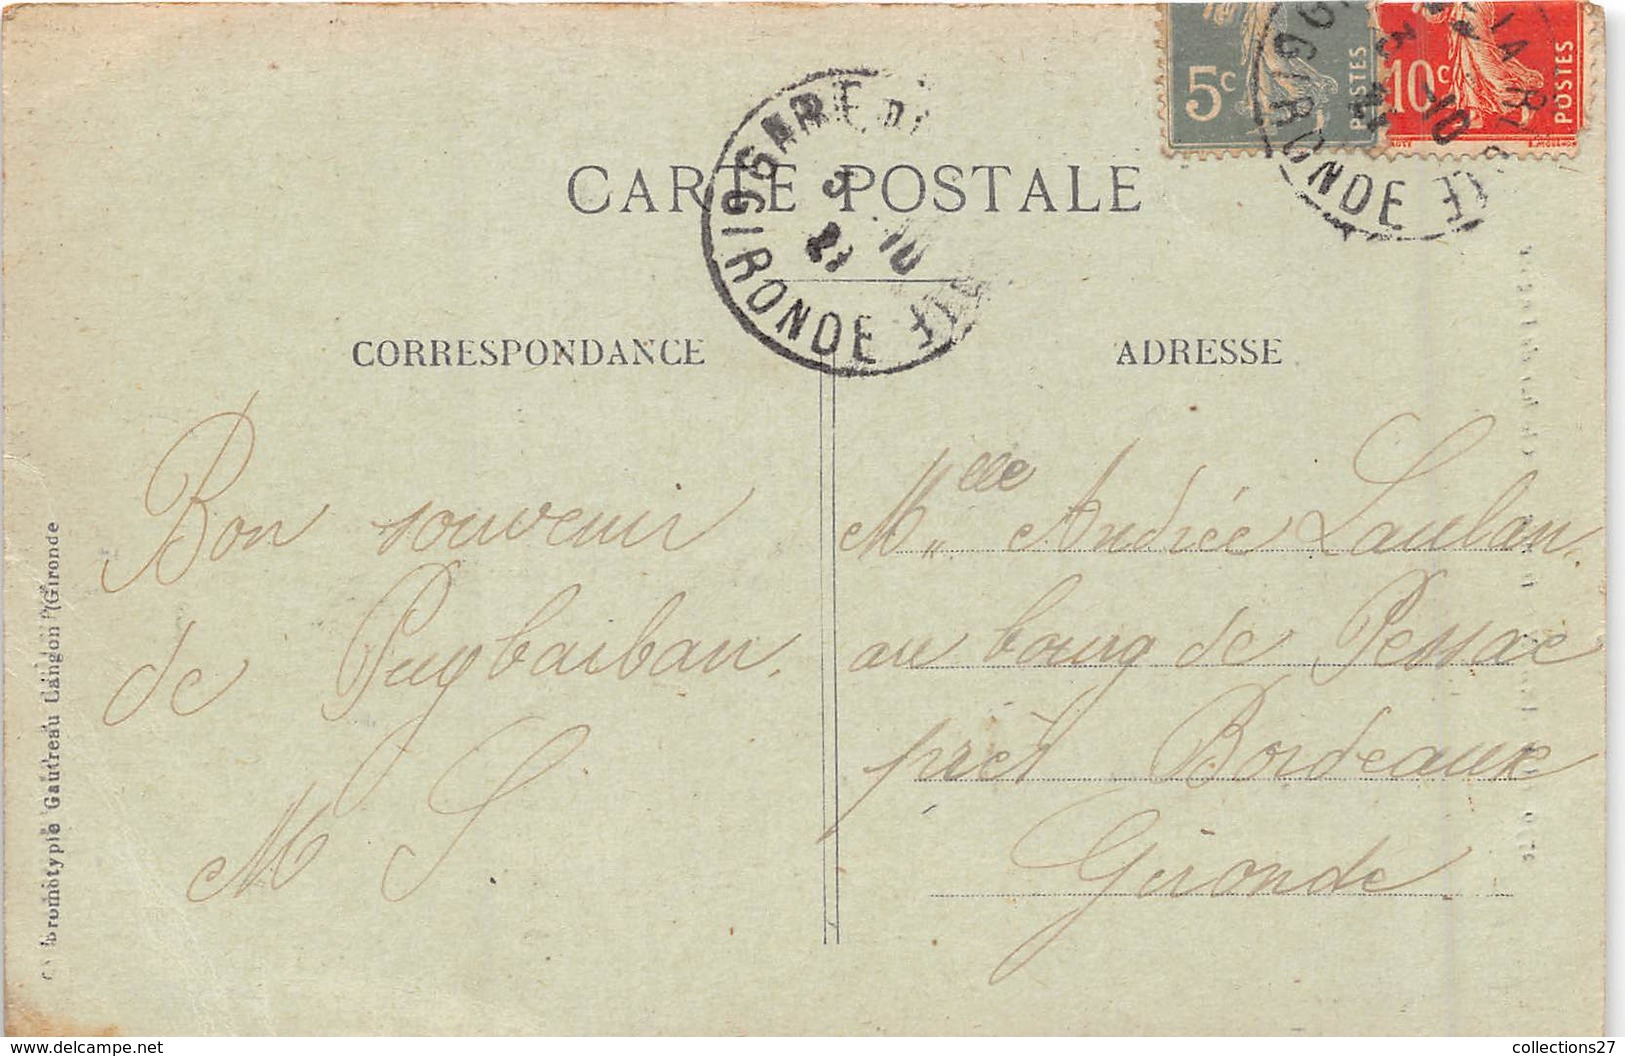 5c POSTES
10c POSTES
GARE DE
GIRONDE
3 10
CARTE POSTALE
CORRESPONDANCE
ADRESSE
Bon souvenir
de Puybarban.
M S
Melle Andrée Laulan.
au bourg de Pessac
près Bordeaux
Gironde
Bromotypie Gautreau Langon (Gironde
collections27